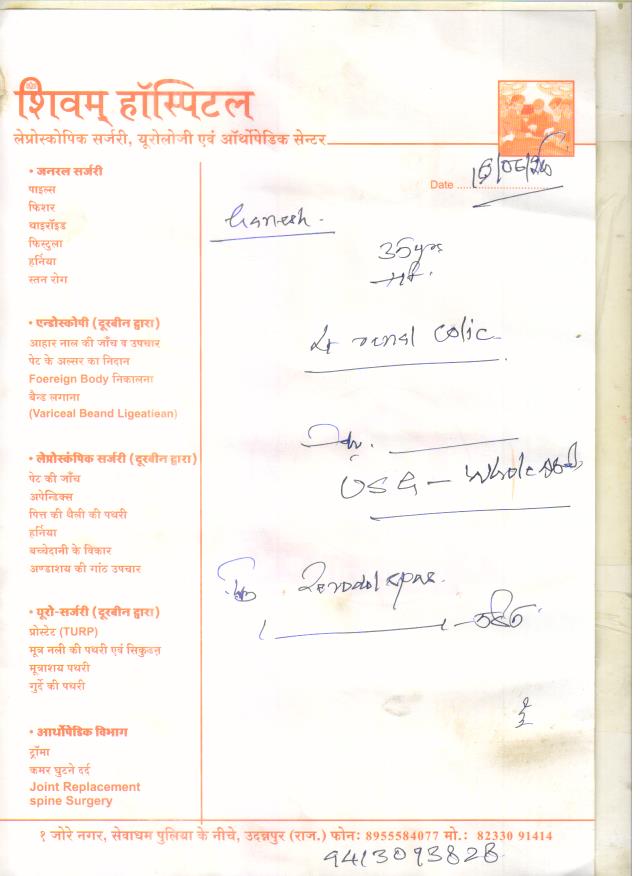 शिवम् हॉस्पिटल
लेप्रोस्कोपिक सर्जरी, यूरोलोजी एवं ऑर्थोपेडिक सेन्टर
Date
Ganesh.
35yrs
renal colic
USG - Whole
• जनरल सर्जरी
पाइल्स
फिशर
थाइरॉइड
फिस्टुला
हर्निया
स्तन रोग
• एन्डोस्कोपी (दूरबीन द्वारा)
आहार नाल की जाँच व उपचार
पेट के अल्सर का निदान
Foereign Body निकालना
बैन्ड लगाना
(Variceal Beand Ligeatiean)
• लेप्रोस्कंपिक सर्जरी (दूरबीन द्वारा)
पेट की जाँच
अपेन्डिक्स
पित्त की थैली की पथरी
हर्निया
बच्चेदानी के विकार
अण्डाशय की गांठ उपचार
Zerodol spas.
• यूरो-सर्जरी (दूरबीन द्वारा)
प्रोस्टेट (TURP)
मूत्र नली की पथरी एवं सिकुडन
मूत्राशय पथरी
गुर्दे की पथरी
• आर्थोपेडिक विभाग
ट्रॉमा
कमर घुटने दर्द
Joint Replacement
spine Surgery
१ जोरे नगर, सेवाधम पुलिया के नीचे, उदन्नपुर (राज.) फोनः 8955584077 मो.: 82330 91414
9413093828